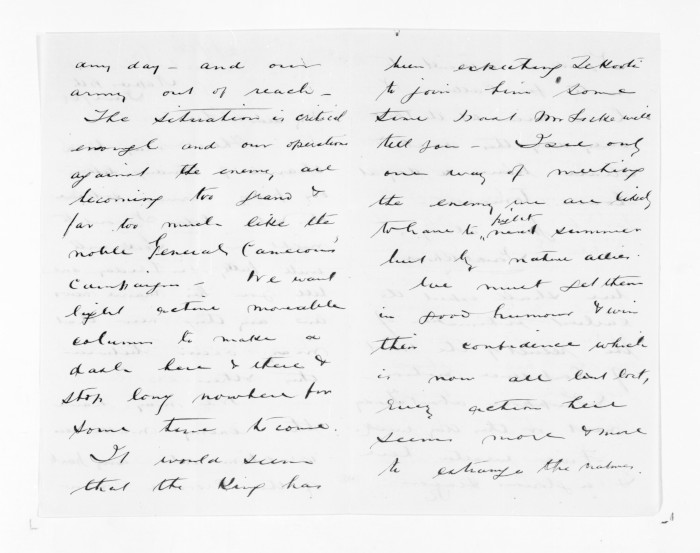 any day - and our
army out of reach -
The situation is critical
enough and our operations
against the enemy are
becoming too grand &
far too much like the
noble General Cameron's
Campaigns - We want
light active moveable
columns to make a
dash here & there &
stop long nowhere for
some time to come.
It would seem
that the King has
been Te Kooti
to join him some
time Mr Locke will
tell you - I see only
one way of meeting
the enemy we are likely
to have to fight next summer
but by native allies.
We must get them
in good humour & win
their confidence which
is now all but lost,
Every action here
seems more & more
to estrange the natives.